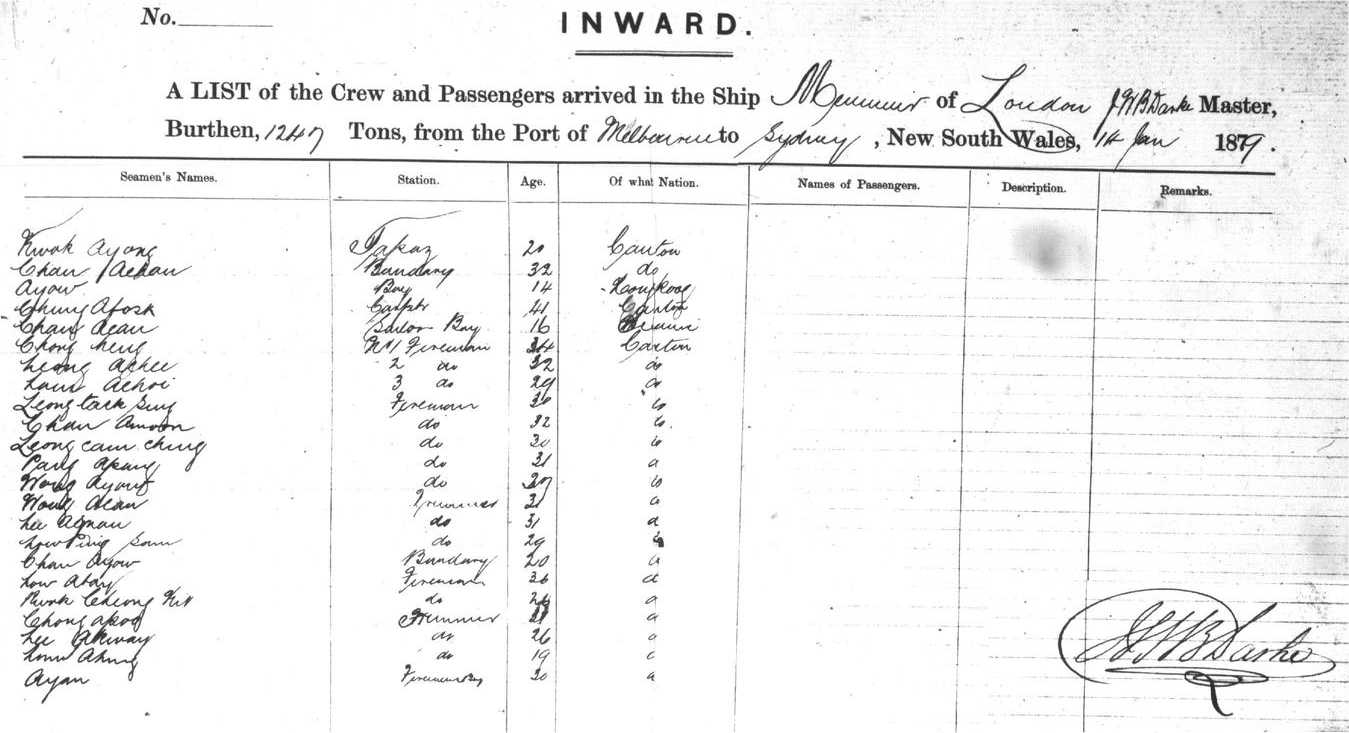 No.
INWARD.
A LIST of the Crew and Passengers arrived in the Ship Menmuir of London J W B Darke Master,
Burthen, 1247 Tons, from the Port of Melbourne to Sydney, New South Wales, 14 Jan 1879.
Seamen's Names. Station. Age. Of what Nation. Names of Passengers. Description. Remarks.
Kwok Ayong 20 Canton
Chan Achan Bandary 32 do
Ayow Boy 14 Hongkong
Chung Afook 41 Canton
Chan Acan Sailor Boy 16
Chong heng No 1 Fireman 34 Canton
Leong Achee 2 do 32 do
Achoi 3 do 29 do
Leong tack Sing Fireman 30 do
Chan Amoon do 32 do
Leong cam Ching do 30 do
Pang Apung do 31 do
Wong Ayong do do
Wong Acan Trimmer do
Lee Aqman do 31 do
Low Ping do 29 do
Chan Ayow Bandary 20 do
Low Atay Fireman 36 do
Kwok Cheong Kit do do
Chong Akoo Trimmer do
Lee Akway do 26 do
Ahung do 19 do
Ayan Firemens Boy 20 do
J W B Darke